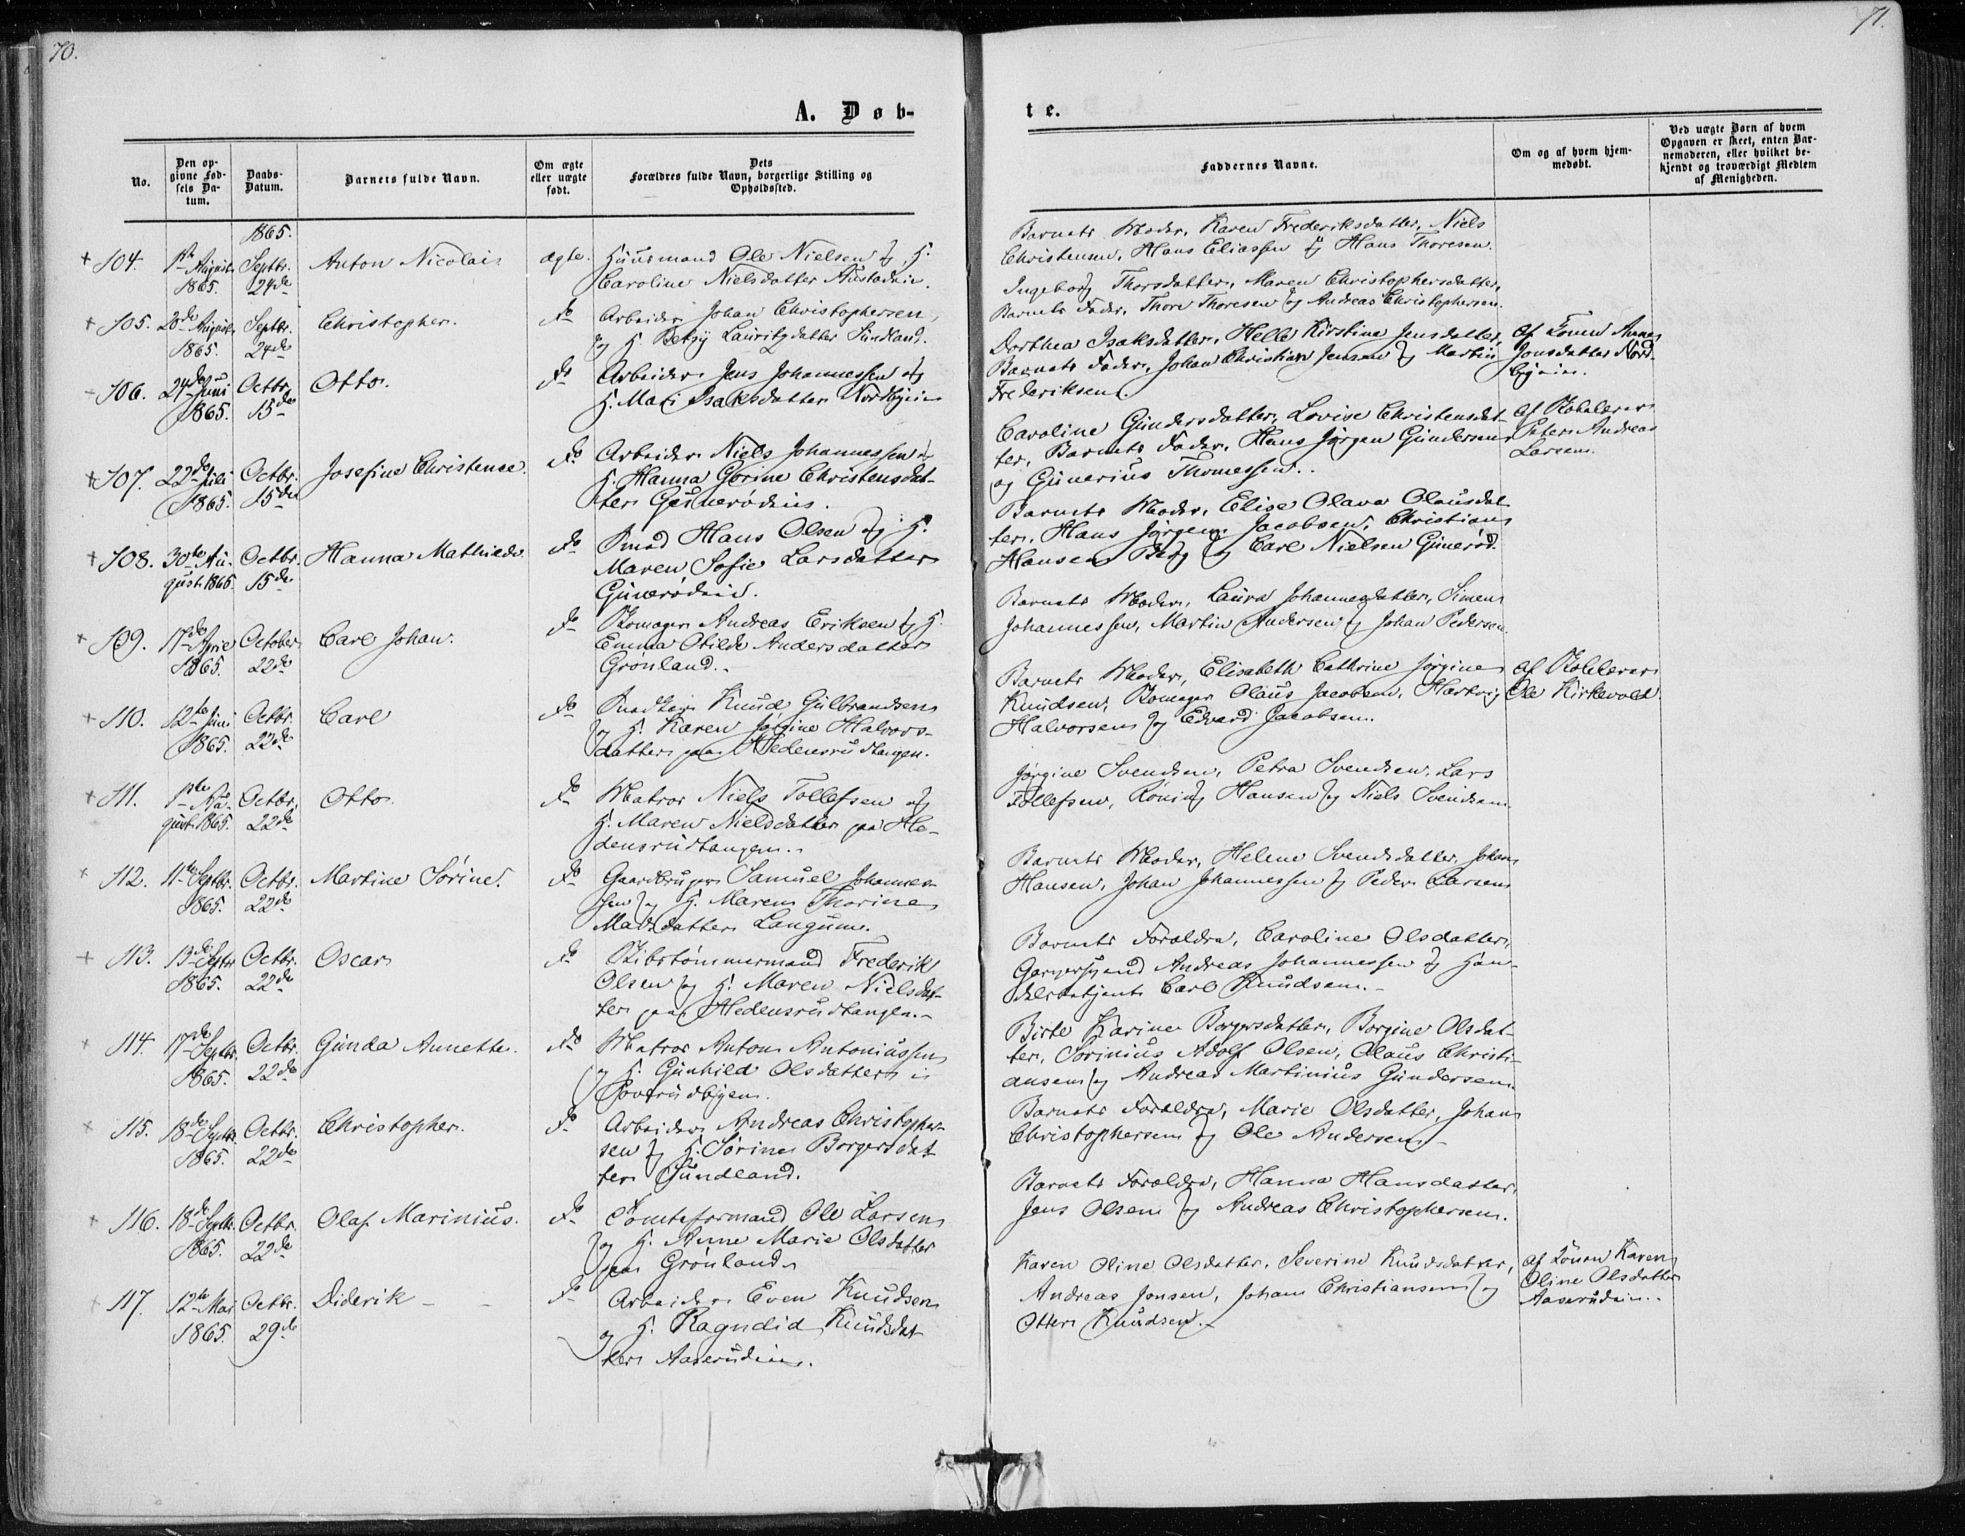 70.
A. Døb-
No.
Den op-
givne Fød-
sels Da-
tum.
Daabs-
Datum.
Barnets fulde Navn.
Om ægte
eller uægte
født.
Dets
Forældres fulde Navn, borgerlige Stilling og
Opholdssted.
1865.
+ 104. 1ste August 1865. Septbr. 24de Anton Nicolai ægte. Huusmand Ole Nielsen og H.
Caroline Nielsdatter
+ 105. 28de August 1865. Septbr. 24de Christopher. do Arbeider Johan Christophersen,
og H. Betsy Lauritzdatter Sundland.
106. 24de Juni 1865. Octbr. 15de Otto. do Arbeider Jens Johannessen og
H. Mari Isaksdatter Nordbyeie
+ 107. 22de Juli 1865. Octbr. 15de Josefine Christense. do Arbeider Niels Johannessen og
H. Hanna Gorine Christensdat-
ter Gunerødeie.
+ 108. 30te Au-
gust 1865. Octbr. 15de Hanna Mathilde do Smed Hans Olsen og H.
Maren Sofie Larsdatter
Gunerødeie.
+ 109. 17de April 1865. October 22de Carl Johan. do Skomager Andreas Eriksen og H.
Emma Otilde Andersdatter
Grønland.
+ 110. 12te Juni 1865. Octbr. 22de Carl do Knud Gulbrandsen
og H. Karen Jørgine Halvors-
datter paa Hedensrudtangen.
+ 111. 1ste Au-
gust 1865. Octbr. 22de Otto. do Matros Niels Tollefsen og
H. Maren Nielsdatter paa He-
densrudtangen.
112. 11te Septbr. 1865. Octbr. 22de Martine Sørine. do Gaardbruger Samuel Johannes-
sen og H. Maren Thorine
Madsdatter Langum.
+ 113. 13de Septbr 1865. Octbr. 22de Oscar do Skibstømmermand Frederik
Olsen og H. Maren Nielsdat-
ter paa Hedensrudtangen.
114. 17de Septbr. 1865. Octbr. 22de Gunda Annette. do Matros Anton Antoniussen
og H. Gunhild Olsdatter i
115. 18de Septbr. 1865. Octbr. 22de Christopher. do Arbeider Andreas Christopher-
sen og H. Sørine Borgersdat-
ter Sundland.
116. 18de Septbr. 1865. Octbr. 22de Olaf Marinius. do Tomteformand Ole Larsen
og H. Anne Marie Olsdatter
paa Grønland
117. 12te Mai 1865. Octbr. 29de Diderik do Arbeider Even Knudsen
og H. Ragndid Knudsdat
ter Aaserudeie.
71.
te.
Faddernes Navne.
Om og af hvem hjem-
medøbt.
Ved uægte Børn af hvem
Opgaven er skeet, enten Bar-
nemoderen, eller hvilket be-
kjendt og troværdigt Medlem
af Menigheden.
Barnets Moder, Karen Frederiksdatter, Niels
Christensen, Hans Eliassen og Hans Thoresen.
Ingeborg Thorsdatter, Maren Christophersdatter,
Barnets Fader, Thore Thoresen og Andreas Christophersen.
Dorthea Isaksdatter, Helle Kirstine Jensdatter,
Barnets Fader, Johan Christian Jensen og Martin
Frederiksen.
af Konen Anne
Jonsdatter Nord-
byeie.
Caroline Gundersdatter, Lovise Christensdat-
ter, Barnets Fader, Hans Jørgen Gundersen
og Gunerius Thomessen.
af Skolelærer
Peter Andreas
Larsen.
Barnets Moder, Elise Olava Olausdat
ter, Hans Jørgen Jacobsen, Christian
Hansen Berg og Carl Nielsen Gunerød.
Barnets Moder, Laura Johannesdatter, Simen
Johannessen, Martin Andersen og Johan Pedersen.
Barnets Moder, Elisabeth Cathrine Jørgine
Knudsen, Skomager Olaus Jacobsen, Hartvig
Halvorsen og Edvard Jacobsen.
af Skolelærer
Ole Kirkevold
Jørgine Svendsen, Petra Svendsen, Lars
Tollefsen, Rønnig Hansen og Niels Svendsen
Barnets Moder, Helene Svendsdatter, Johan
Hansen, Johan Johannessen og Peder Larsen
Barnets Forældre, Caroline Olsdatter,
Garversvend Andreas Johannessen og Han-
delsbetjent Carl Knudsen.
Birte Karine Borgersdatter, Borgine Olsdat-
ter, Sorinius Adolf Olsen, Olaus Christi-
ansen og Andreas Martinius Gundersen.
Barnets Forældre, Marie Olsdatter, Johan
Christophersen og Ole Andersen
Barnets Forældre, Hanna Hansdatter,
Jens Olsen og Andreas Christophersen.
Karen Oline Olsdatter, Severine Knudsdatter,
Andreas Jonsen, Johan Christiansen og
Otter Knudsen.
af Konen Karen
Oline Olsdatter
Aaserudeie.